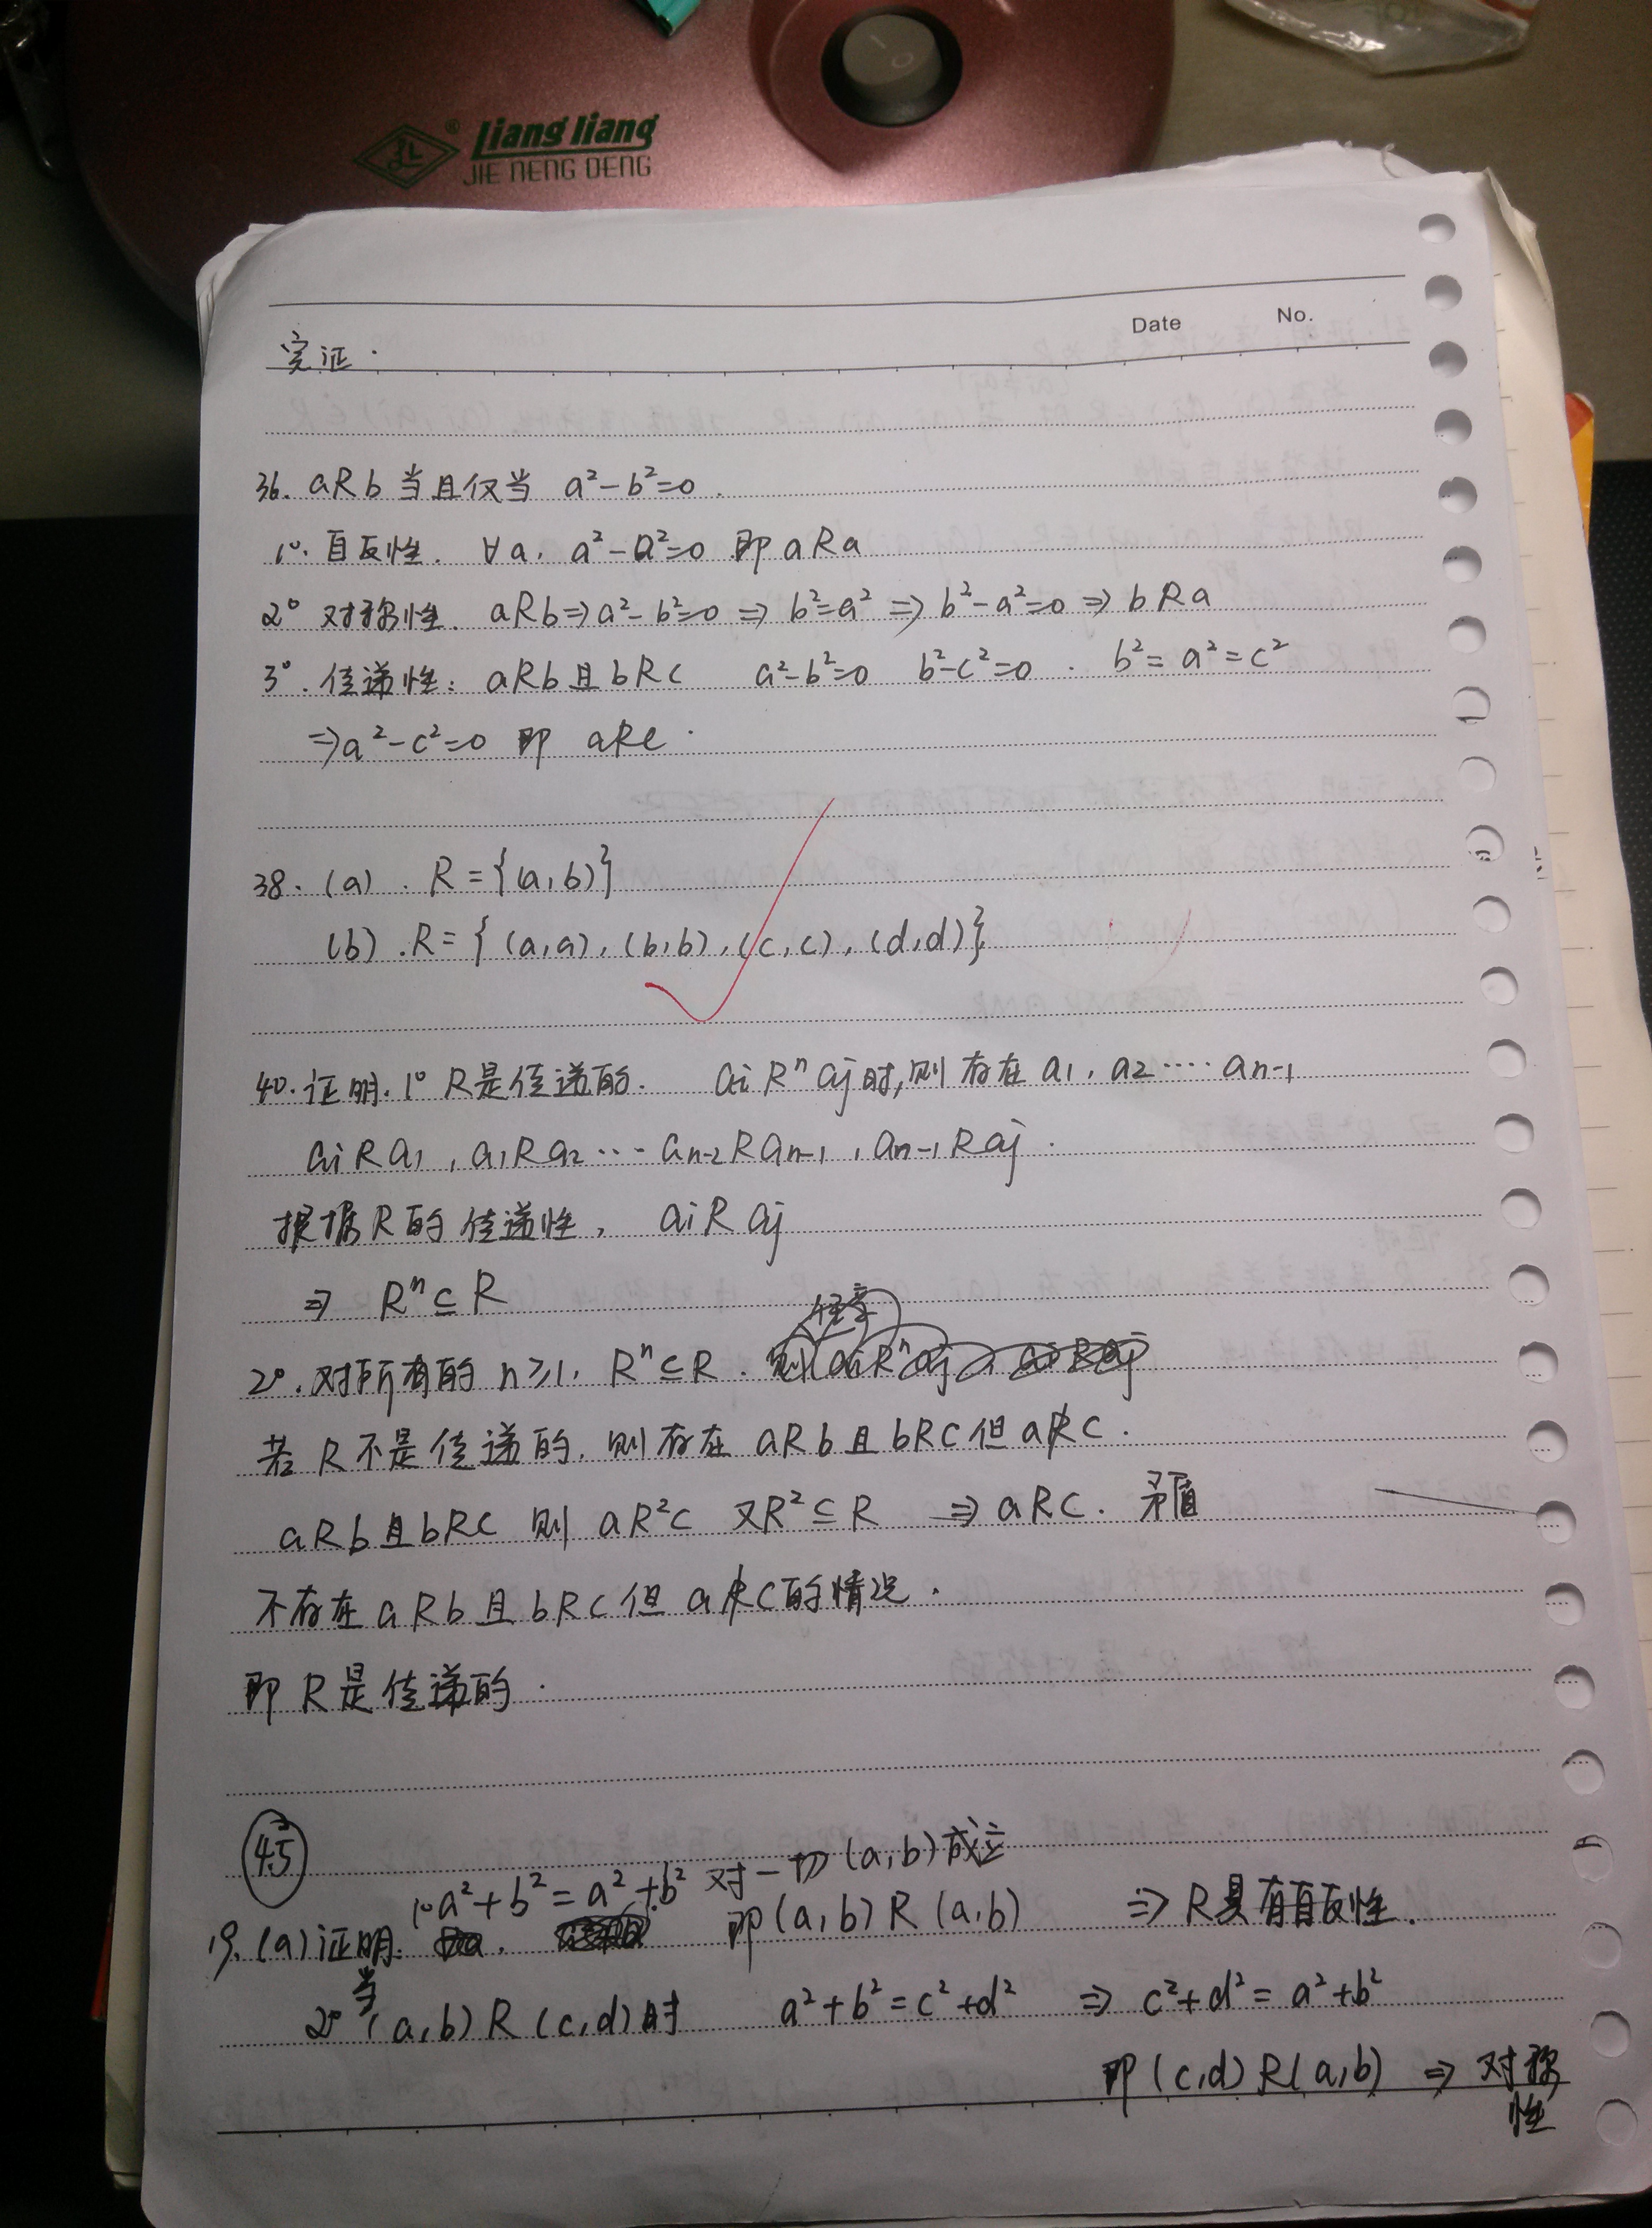 Liang liang
JIE NENG DENG
Date No.
完证.
36. aRb 当且仅当 a²-b²=0.
1°. 自反性. ∀a. a²-a²=0 即 aRa
2° 对称性. aRb⇒a²-b²=0 ⇒ b²=a² ⇒ b²-a²=0 ⇒ bRa
3°. 传递性: aRb且bRc a²-b²=0 b²-c²=0. b²=a²=c²
⇒a²-c²=0 即 aRc.
38. (a). R={(a,b)}
(b). R={(a,a),(b,b),(c,c),(d,d)}
40. 证明. 1° R是传递的. aiRⁿaj时,则存在 a1, a2 ···· an-1
aiRa1, a1Ra2 ··· an-2Ran-1, an-1Raj.
根据R的传递性, aiRaj
⇒ Rⁿ⊆R
2°. 对所有的 n≥1, Rⁿ⊆R.
若R不是传递的, 则存在 aRb且bRc但aR̸c.
aRb且bRc 则 aR²c 又R²⊆R ⇒ aRc. 矛盾
不存在aRb且bRc但aR̸c的情况.
即R是传递的.
4.5
1° a²+b²=a²+b² 对一切(a,b)成立
19. (a)证明. 即(a,b)R(a,b) ⇒ R具有自反性.
2° 当(a,b)R(c,d)时 a²+b²=c²+d² ⇒ c²+d²=a²+b²
即(c,d)R(a,b) ⇒ 对称性